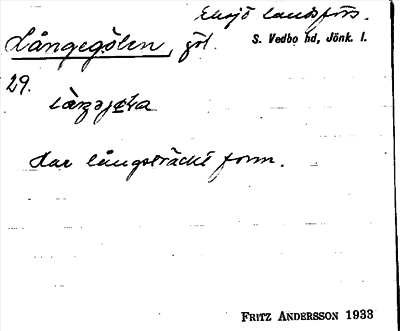 Eksjö landsförs.
Långegölen, göl. S. Vedbo hd, Jönk. l.
29.
Har långsträckt form.
FRITZ ANDERSSON 1933